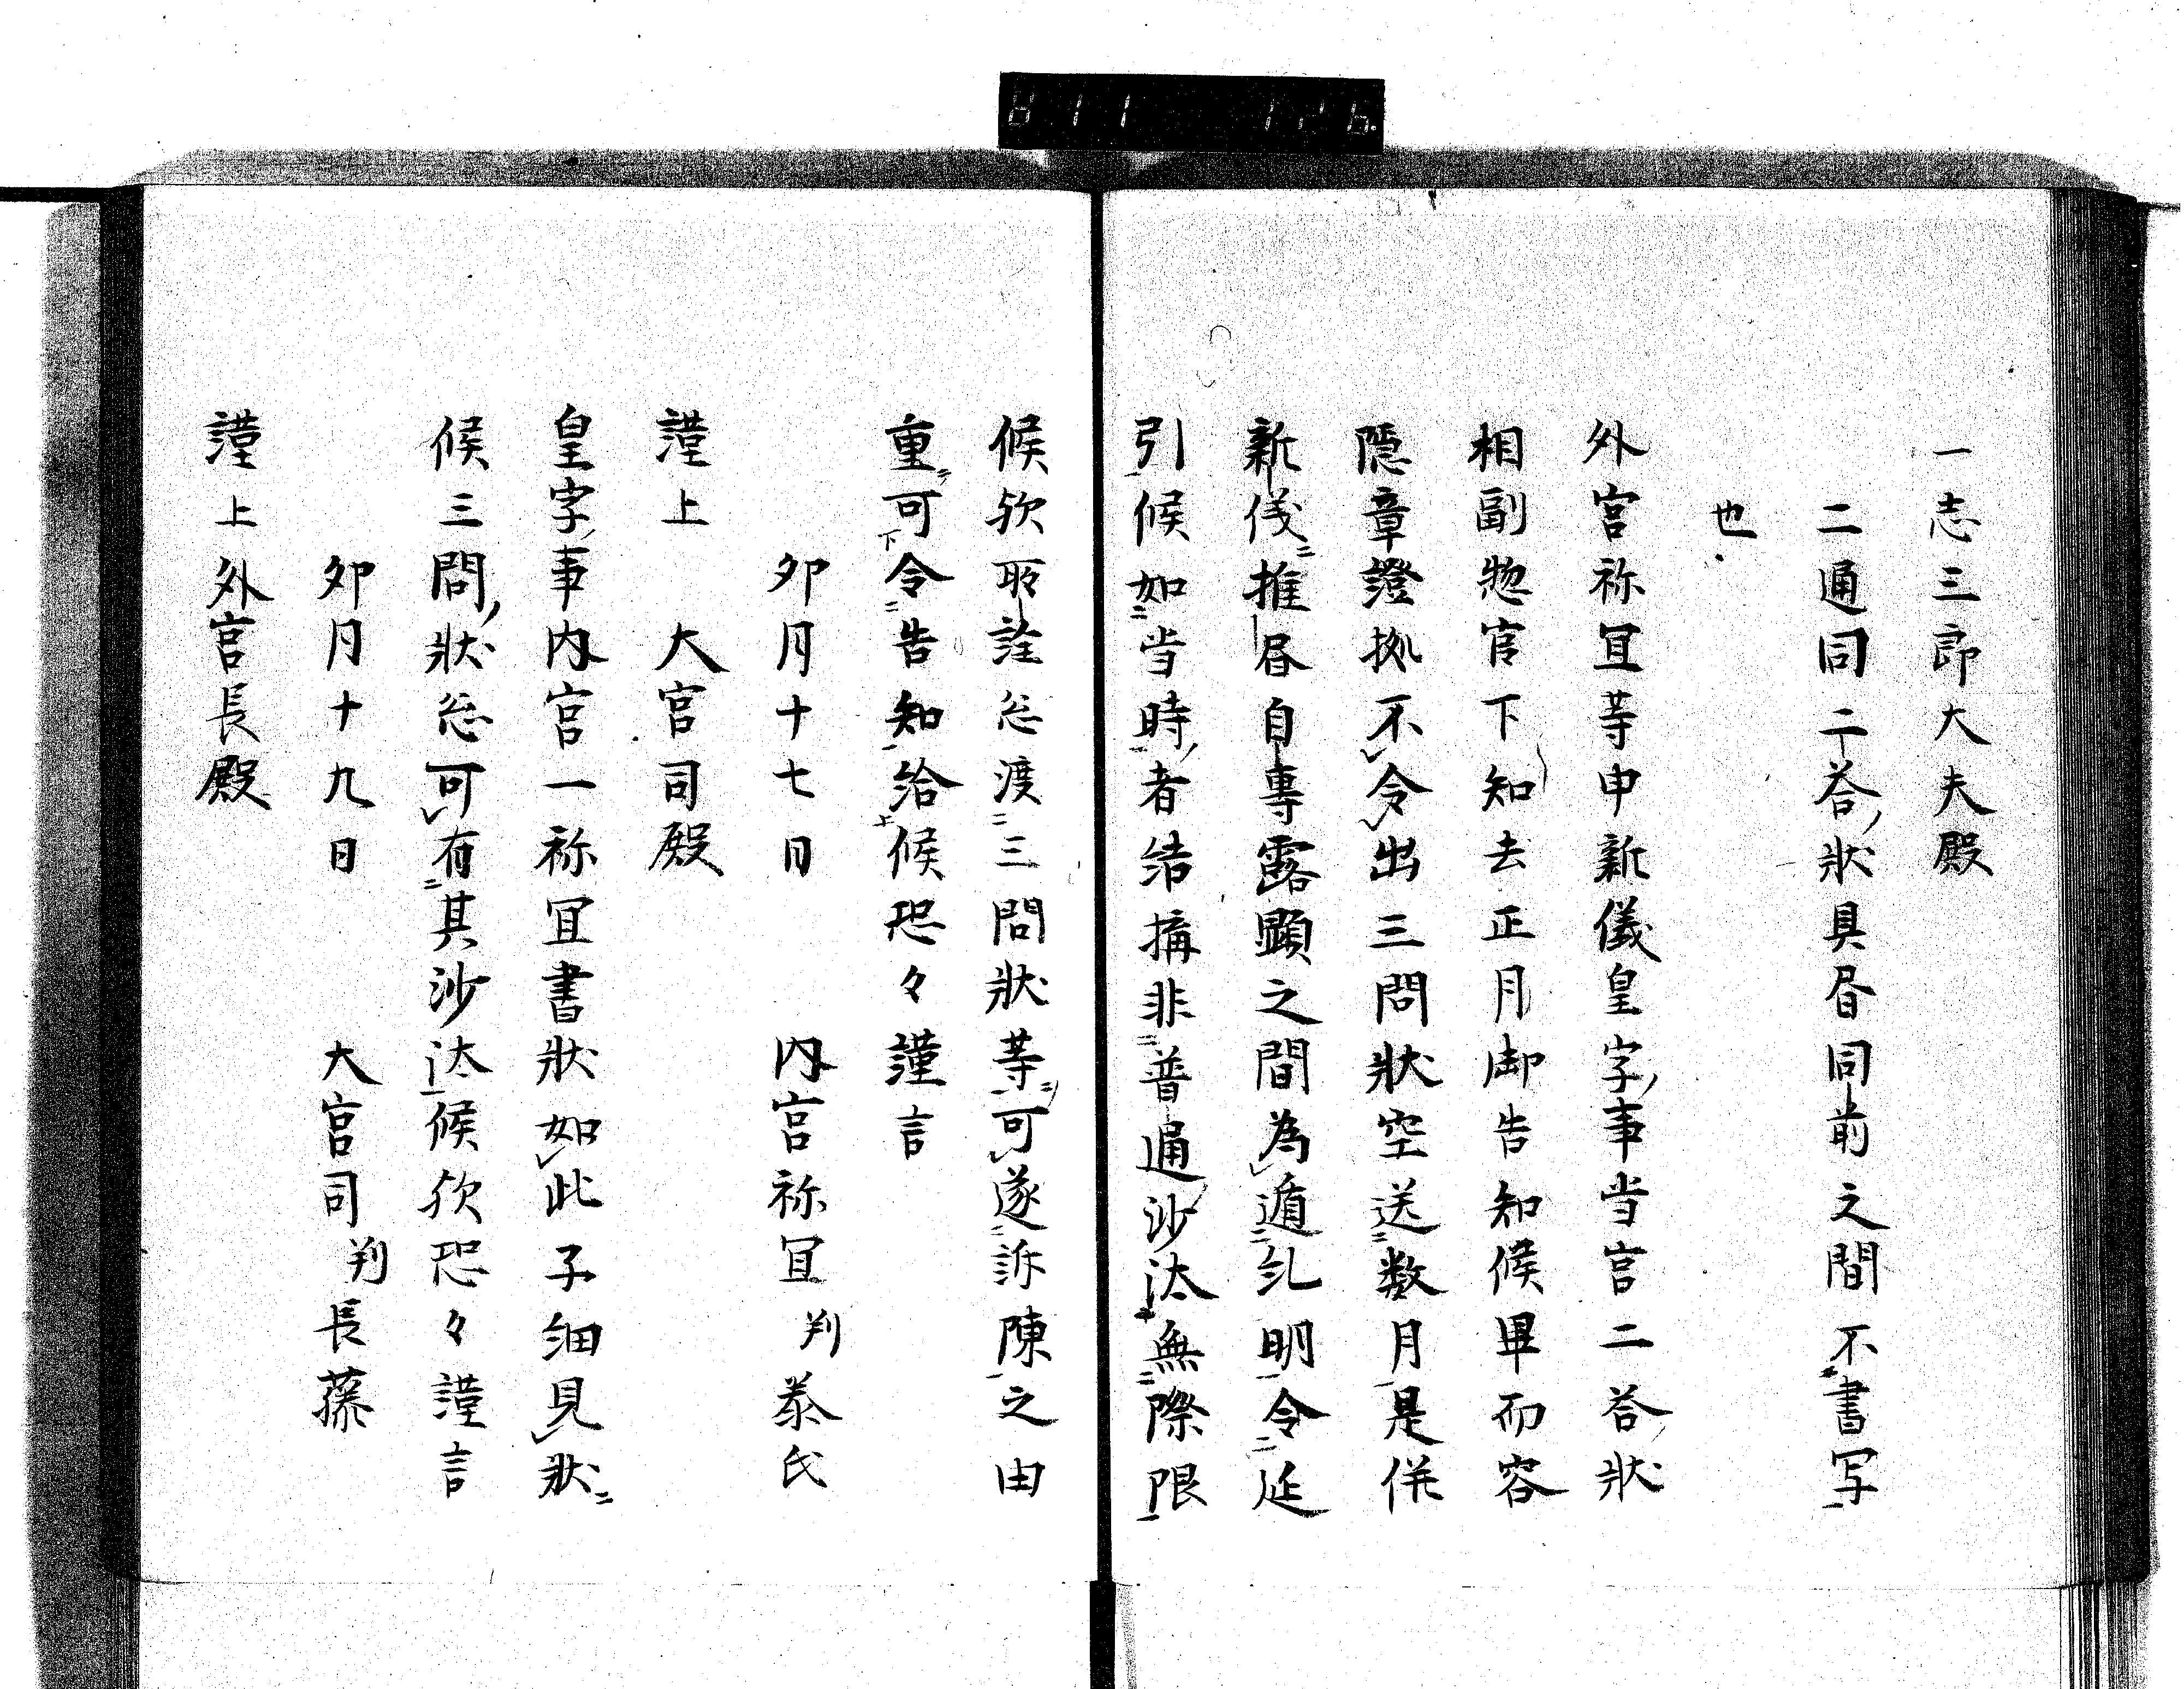 一志三郎大夫殿
二通同二荅状具昬同前之間不書写
也
外宮祢冝等申新儀皇字事当宮二荅状
相副惣官下知去正月御告知候畢而容
隠章證拠不令出三問状空送数月是併
新儀推昬自専露顕之間為遁糺明令延
引候如当時者結搆非普通沙汰無際限
候欤所詮忩渡三問状等可遂訴陳之由
重可令告知給候恐々謹言
卯月十七日 内宮祢冝判 泰氏
謹上 大宮司殿
皇字事内宮一祢冝書状如此子細見状
候三問状忩可有其沙汰候欤恐々謹言
卯月十九日 大宮司判 長藤
謹上外宮長殿